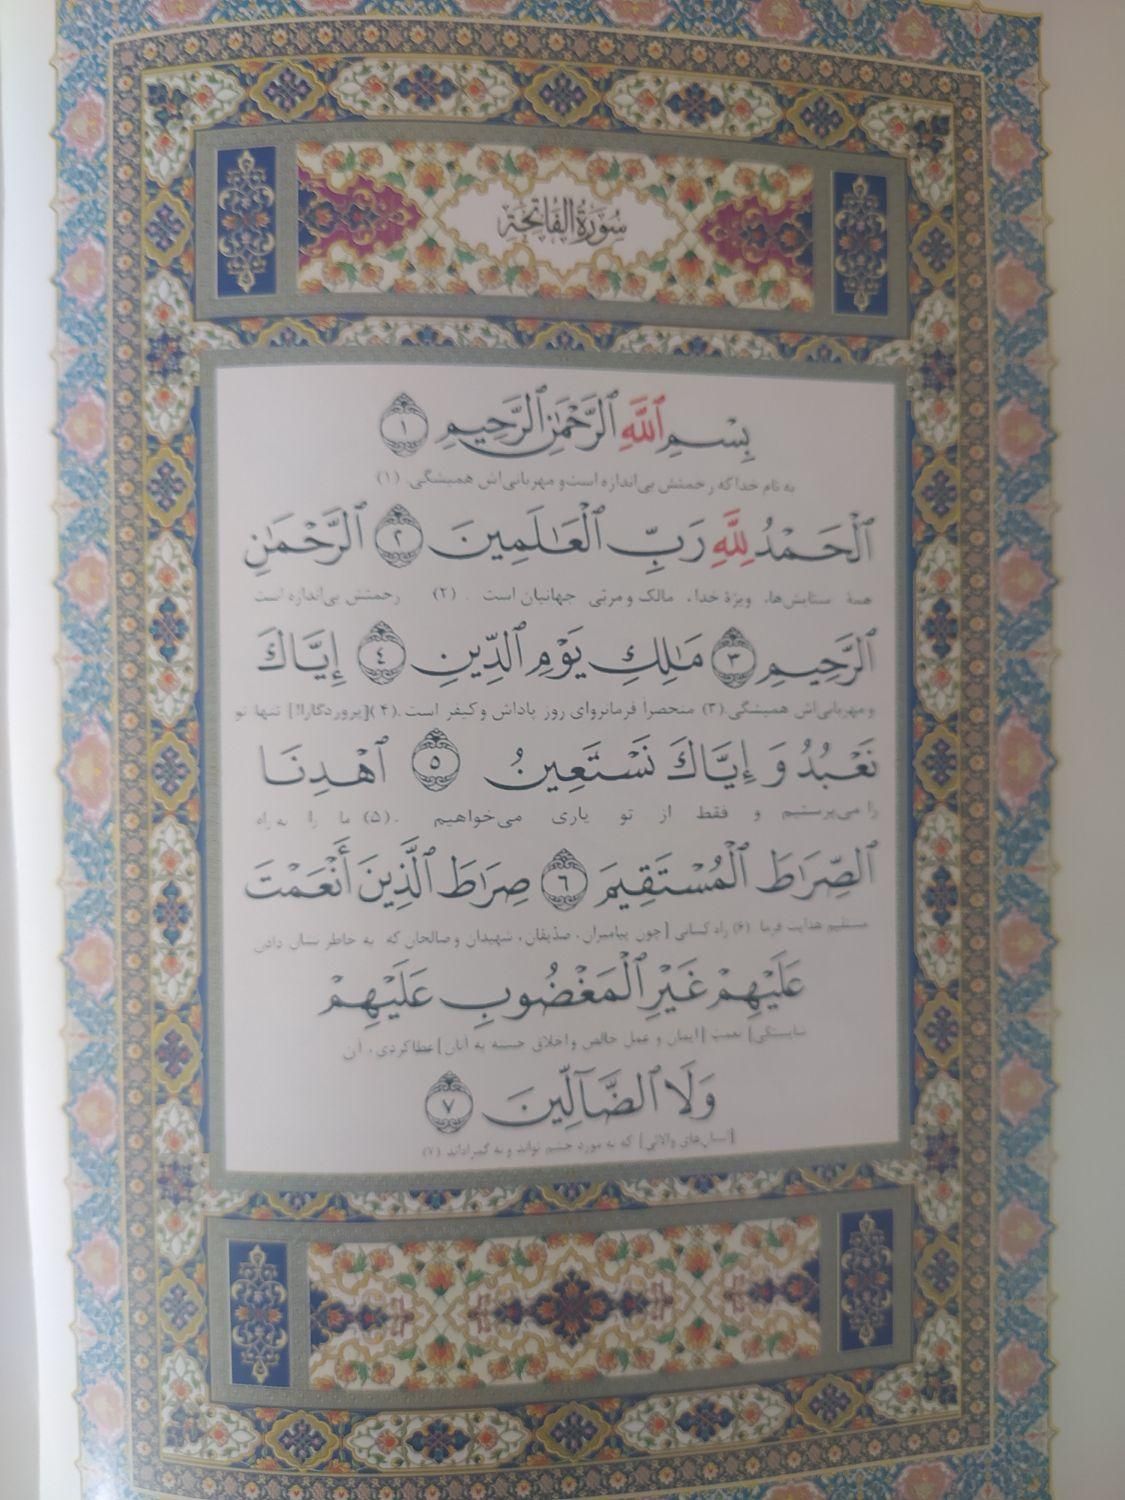 سُورَةُ الْفَاتِحَةِ
بِسْمِ ٱللَّهِ ٱلرَّحْمَٰنِ ٱلرَّحِيمِ ﴿١﴾
به نام خدا که رحمتش بی‌اندازه است و مهربانی‌اش همیشگی. (۱)
ٱلْحَمْدُ لِلَّهِ رَبِّ ٱلْعَالَمِينَ ﴿٢﴾ ٱلرَّحْمَٰنِ
همهٔ ستایش‌ها، ویژهٔ خدا، مالک و مربّی جهانیان است . (۲) رحمتش بی‌اندازه است
ٱلرَّحِيمِ ﴿٣﴾ مَالِكِ يَوْمِ ٱلدِّينِ ﴿٤﴾ إِيَّاكَ
و مهربانی‌اش همیشگی.(۳) منحصراً فرمانروای روز پاداش و کیفر است .(۴)[پروردگارا!] تنها تو
نَعْبُدُ وَ إِيَّاكَ نَسْتَعِينُ ﴿٥﴾ ٱهْدِنَا
را می‌پرستیم و فقط از تو یاری می‌خواهیم .(۵) ما را به راه
ٱلصِّرَاطَ ٱلْمُسْتَقِيمَ ﴿٦﴾ صِرَاطَ ٱلَّذِينَ أَنْعَمْتَ
مستقیم هدایت فرما (۶) راه کسانی [چون پیامبران، صدّیقان، شهیدان و صالحان که به خاطر نشان دادن
عَلَيْهِمْ غَيْرِ ٱلْمَغْضُوبِ عَلَيْهِمْ
شایستگی] نعمت [ایمان و عمل خالص و اخلاق حسنه به آنان] عطا کردی، آن
وَلَا ٱلضَّآلِّينَ ﴿٧﴾
[انسان‌های والائی] که نه مورد خشم تواند و نه گمراه‌اند (۷)